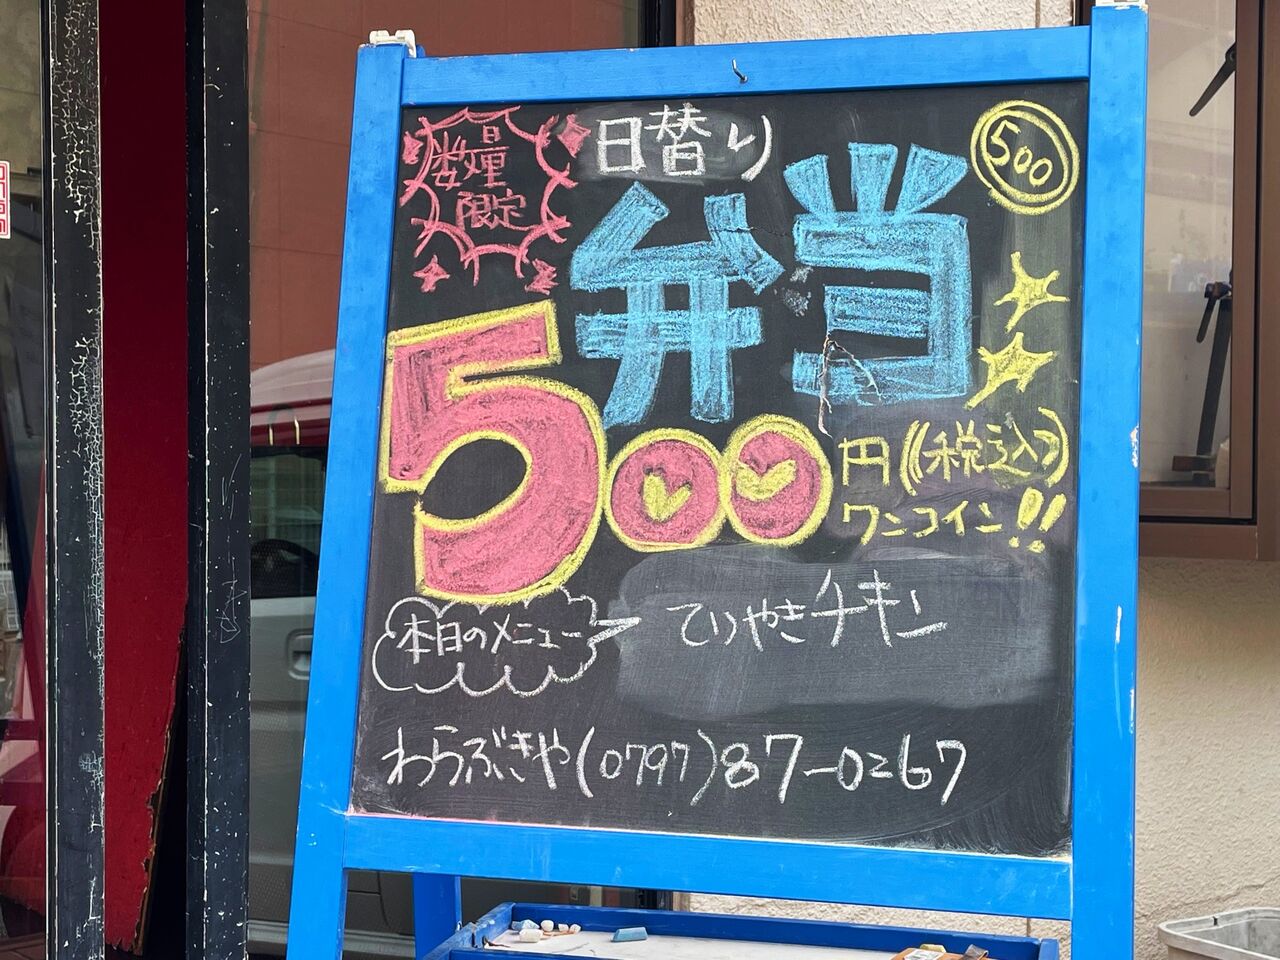 数量
限定
日替り
500
弁当
500円(税込)
ワンコイン!!
本日のメニュー
てりやきチキン
わらぶきや(0797)87-0267